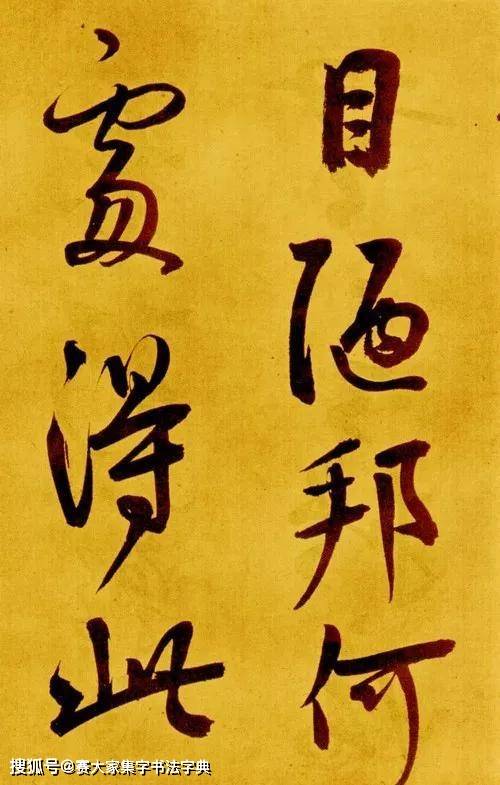 目陋邦何
處得此
搜狐号@赛大家集字书法字典